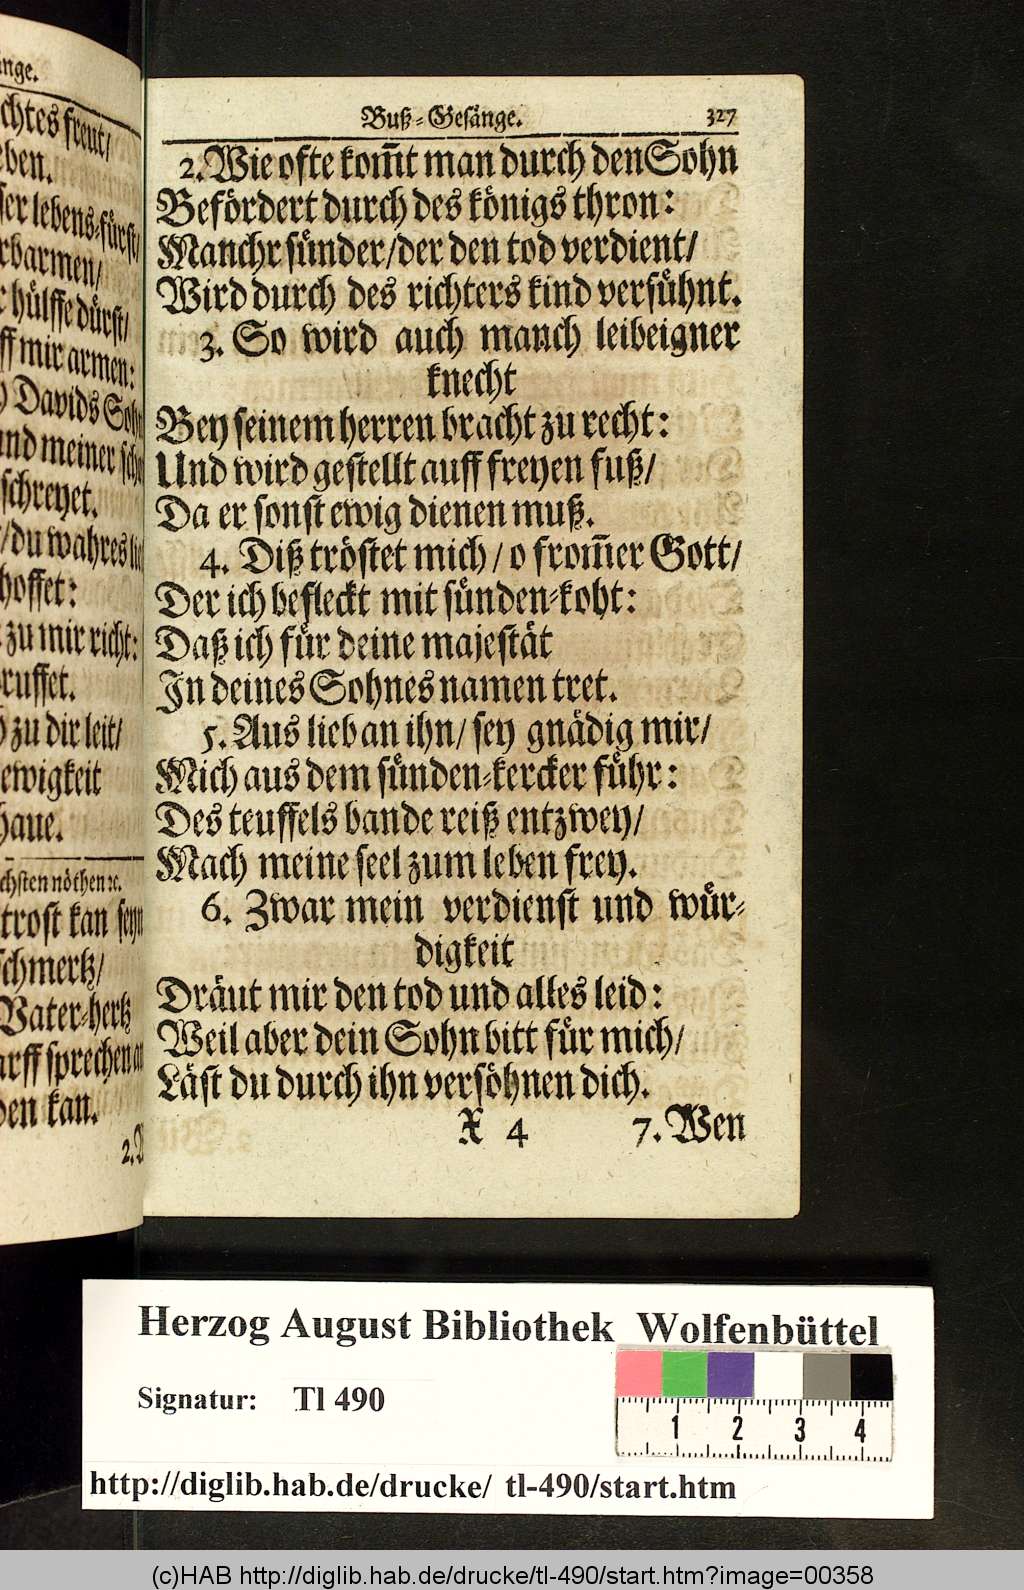 Buß-Gesänge. 327
2. Wie ofte kom̃t man durch den Sohn
Befördert durch des königs thron:
Manchr sünder/der den tod verdient/
Wird durch des richters kind versühnt.
3. So wird auch manch leibeigner
knecht
Bey seinem herren bracht zu recht:
Und wird gestellt auff freyen fuß/
Da er sonst ewig dienen muß.
4. Diß tröstet mich/ o from̃er Gott/
Der ich befleckt mit sünden-koht:
Daß ich für deine majestät
In deines Sohnes namen tret.
5. Aus lieb an ihn/ sey gnädig mir/
Mich aus dem sünden-kercker führ:
Des teuffels bande reiß entzwey/
Mach meine seel zum leben frey.
6. Zwar mein verdienst und wür-
digkeit
Dräut mir den tod und alles leid:
Weil aber dein Sohn bitt für mich/
Läst du durch ihn versöhnen dich.
X 4 7. Wen
freut/
lebens-fürst/
hülffe dürst/
mir armen:
Davids
und meiner
schreyet.
/du wahres
hoffet:
zu mir richt:
zu dir leit/
ewigkeit
nöthen ꝛc.
trost kan
Vater-hertz
sprechen
kan.
2.
Herzog August Bibliothek Wolfenbüttel
Signatur: Tl 490
1 2 3 4
http://diglib.hab.de/drucke/ tl-490/start.htm
(c)HAB http://diglib.hab.de/drucke/tl-490/start.htm?image=00358